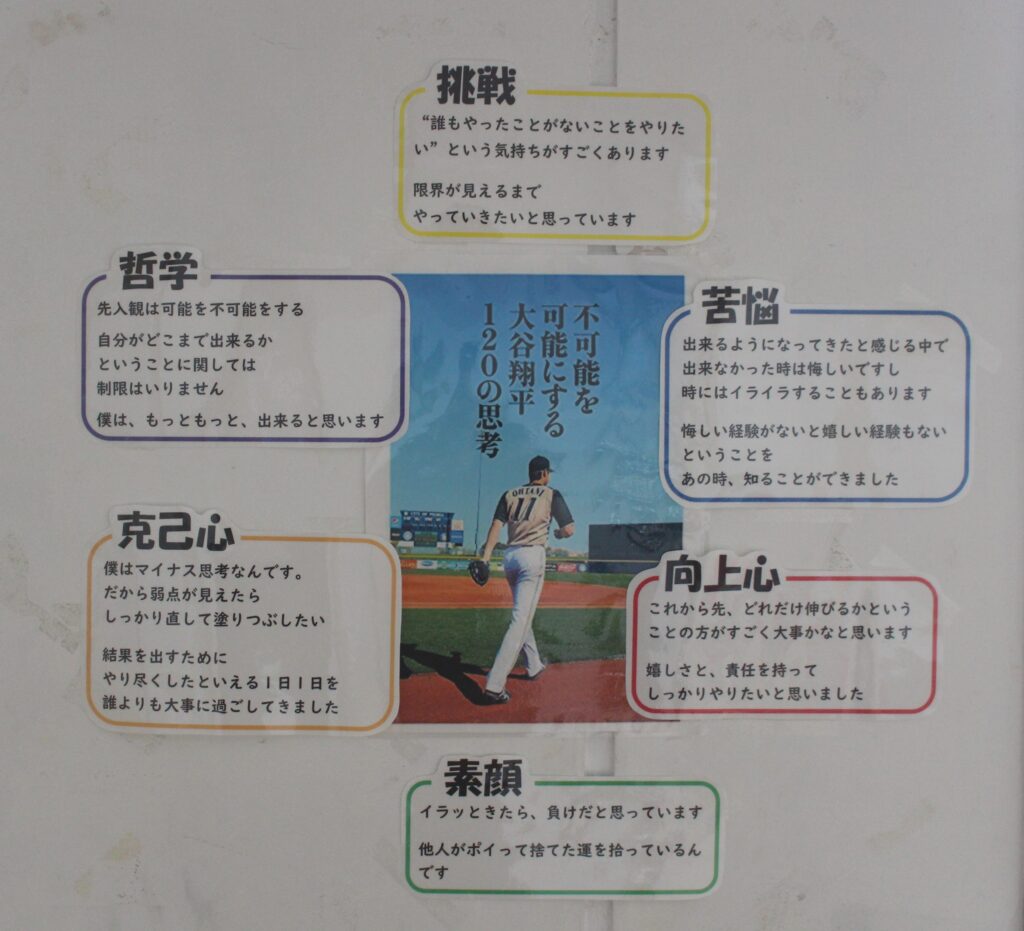 挑戦
“誰もやったことがないことをやりた
い”という気持ちがすごくあります
限界が見えるまで
やっていきたいと思っています
哲学
先入観は可能を不可能をする
自分がどこまで出来るか
ということに関しては
制限はいりません
僕は、もっともっと、出来ると思います
不可能を
可能にする
大谷翔平
120の思考
OHTANI
11
苦悩
出来るようになってきたと感じる中で
出来なかった時は悔しいですし
時にはイライラすることもあります
悔しい経験がないと嬉しい経験もない
ということを
あの時、知ることができました
克己心
僕はマイナス思考なんです。
だから弱点が見えたら
しっかり直して塗りつぶしたい
結果を出すために
やり尽くしたといえる1日1日を
誰よりも大事に過ごしてきました
向上心
これから先、どれだけ伸びるかという
ことの方がすごく大事かなと思います
嬉しさと、責任を持って
しっかりやりたいと思いました
素顔
イラッときたら、負けだと思っています
他人がポイって捨てた運を拾っているん
です